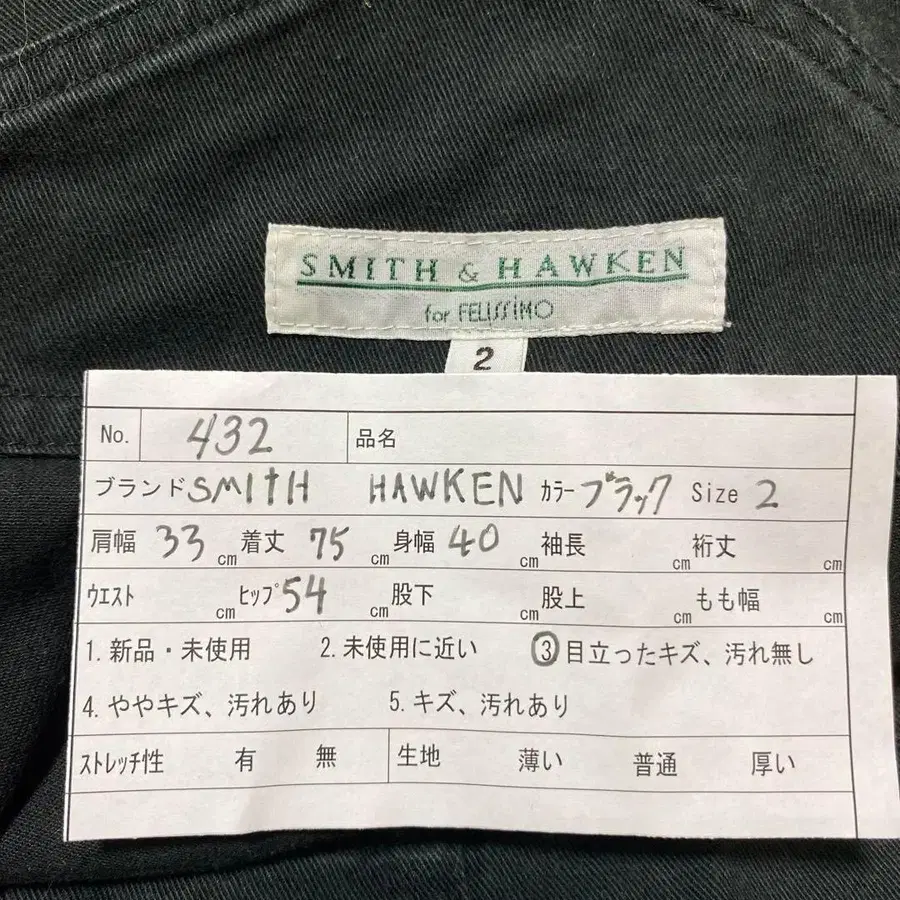 SMITH & HAWKEN
for FELISSIMO
2
No. 432 品名
ブランド SMITH HAWKEN カラー ブラック Size 2
肩幅 33 cm 着丈 75 cm 身幅 40 cm 袖長 cm 裄丈 cm
ウエスト cm ヒップ 54 cm 股下 cm 股上 cm もも幅 cm
1. 新品・未使用 2. 未使用に近い ③ 目立ったキズ、汚れ無し
4. ややキズ、汚れあり 5. キズ、汚れあり
ストレッチ性 有 無 生地 薄い 普通 厚い